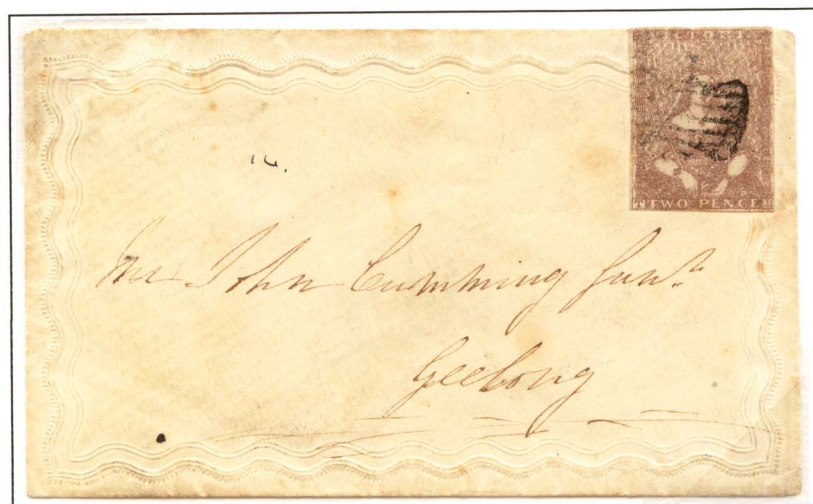 VICTORIA
TWO PENCE
Mr John Cumming Junr
Geelong